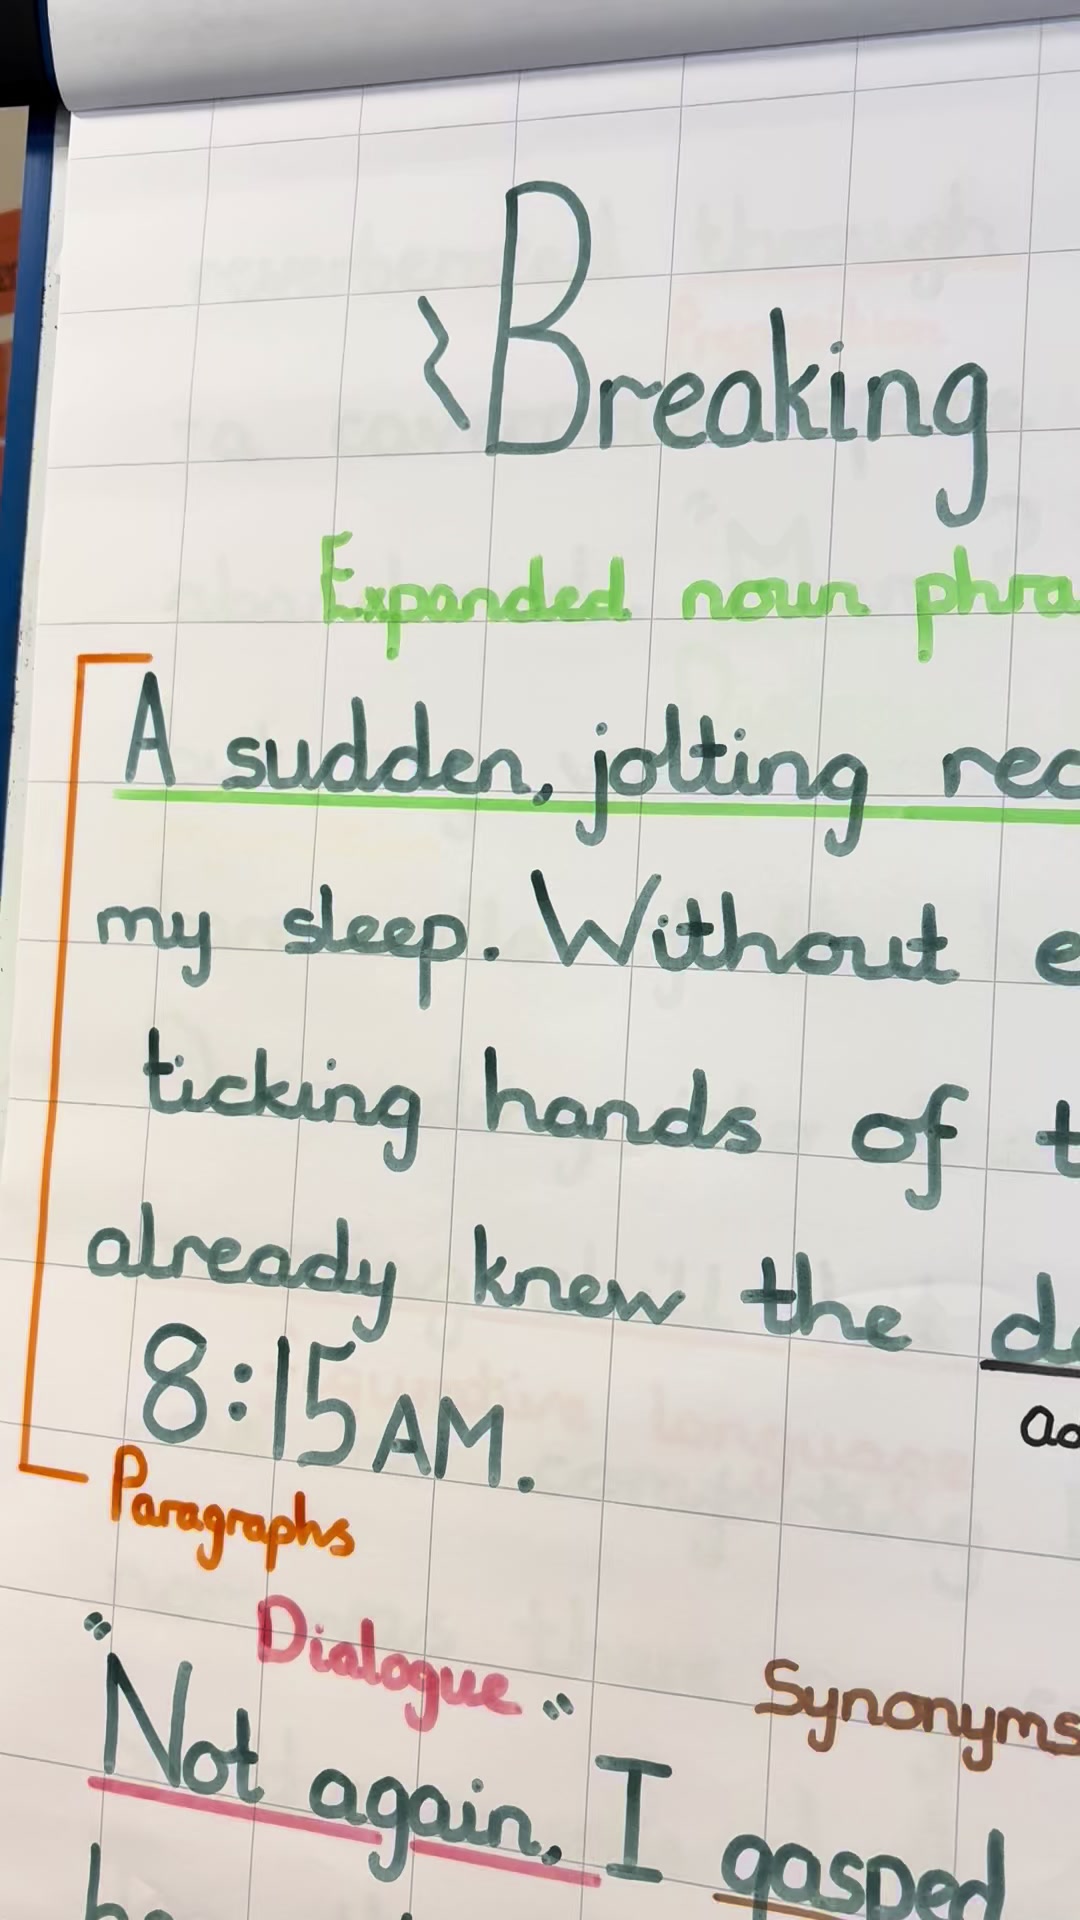 Breaking
Expanded noun
A sudden, jolting
my sleep. Without
ticking hands of
already knew the
8:15 AM.
Paragraphs
Dialogue
Synonyms
"Not again," I gasped